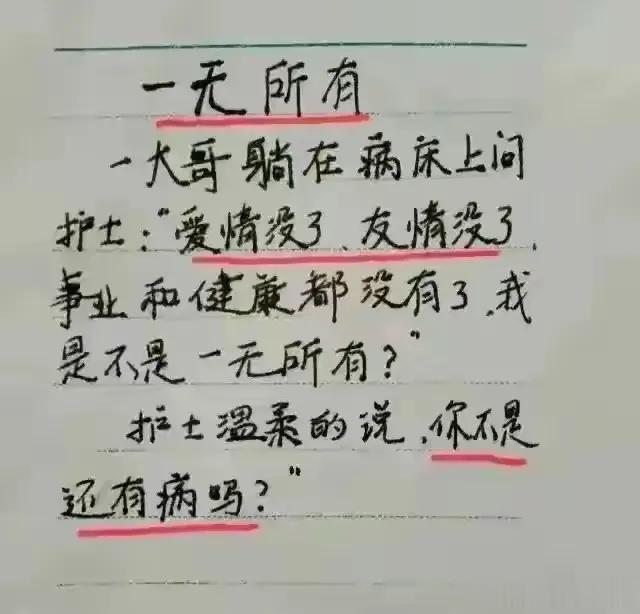 一无所有
一大哥躺在病床上问
护士:"爱情没了、友情没了,
事业和健康都没有了,我
是不是一无所有?"
护士温柔的说,你不是
还有病吗?"